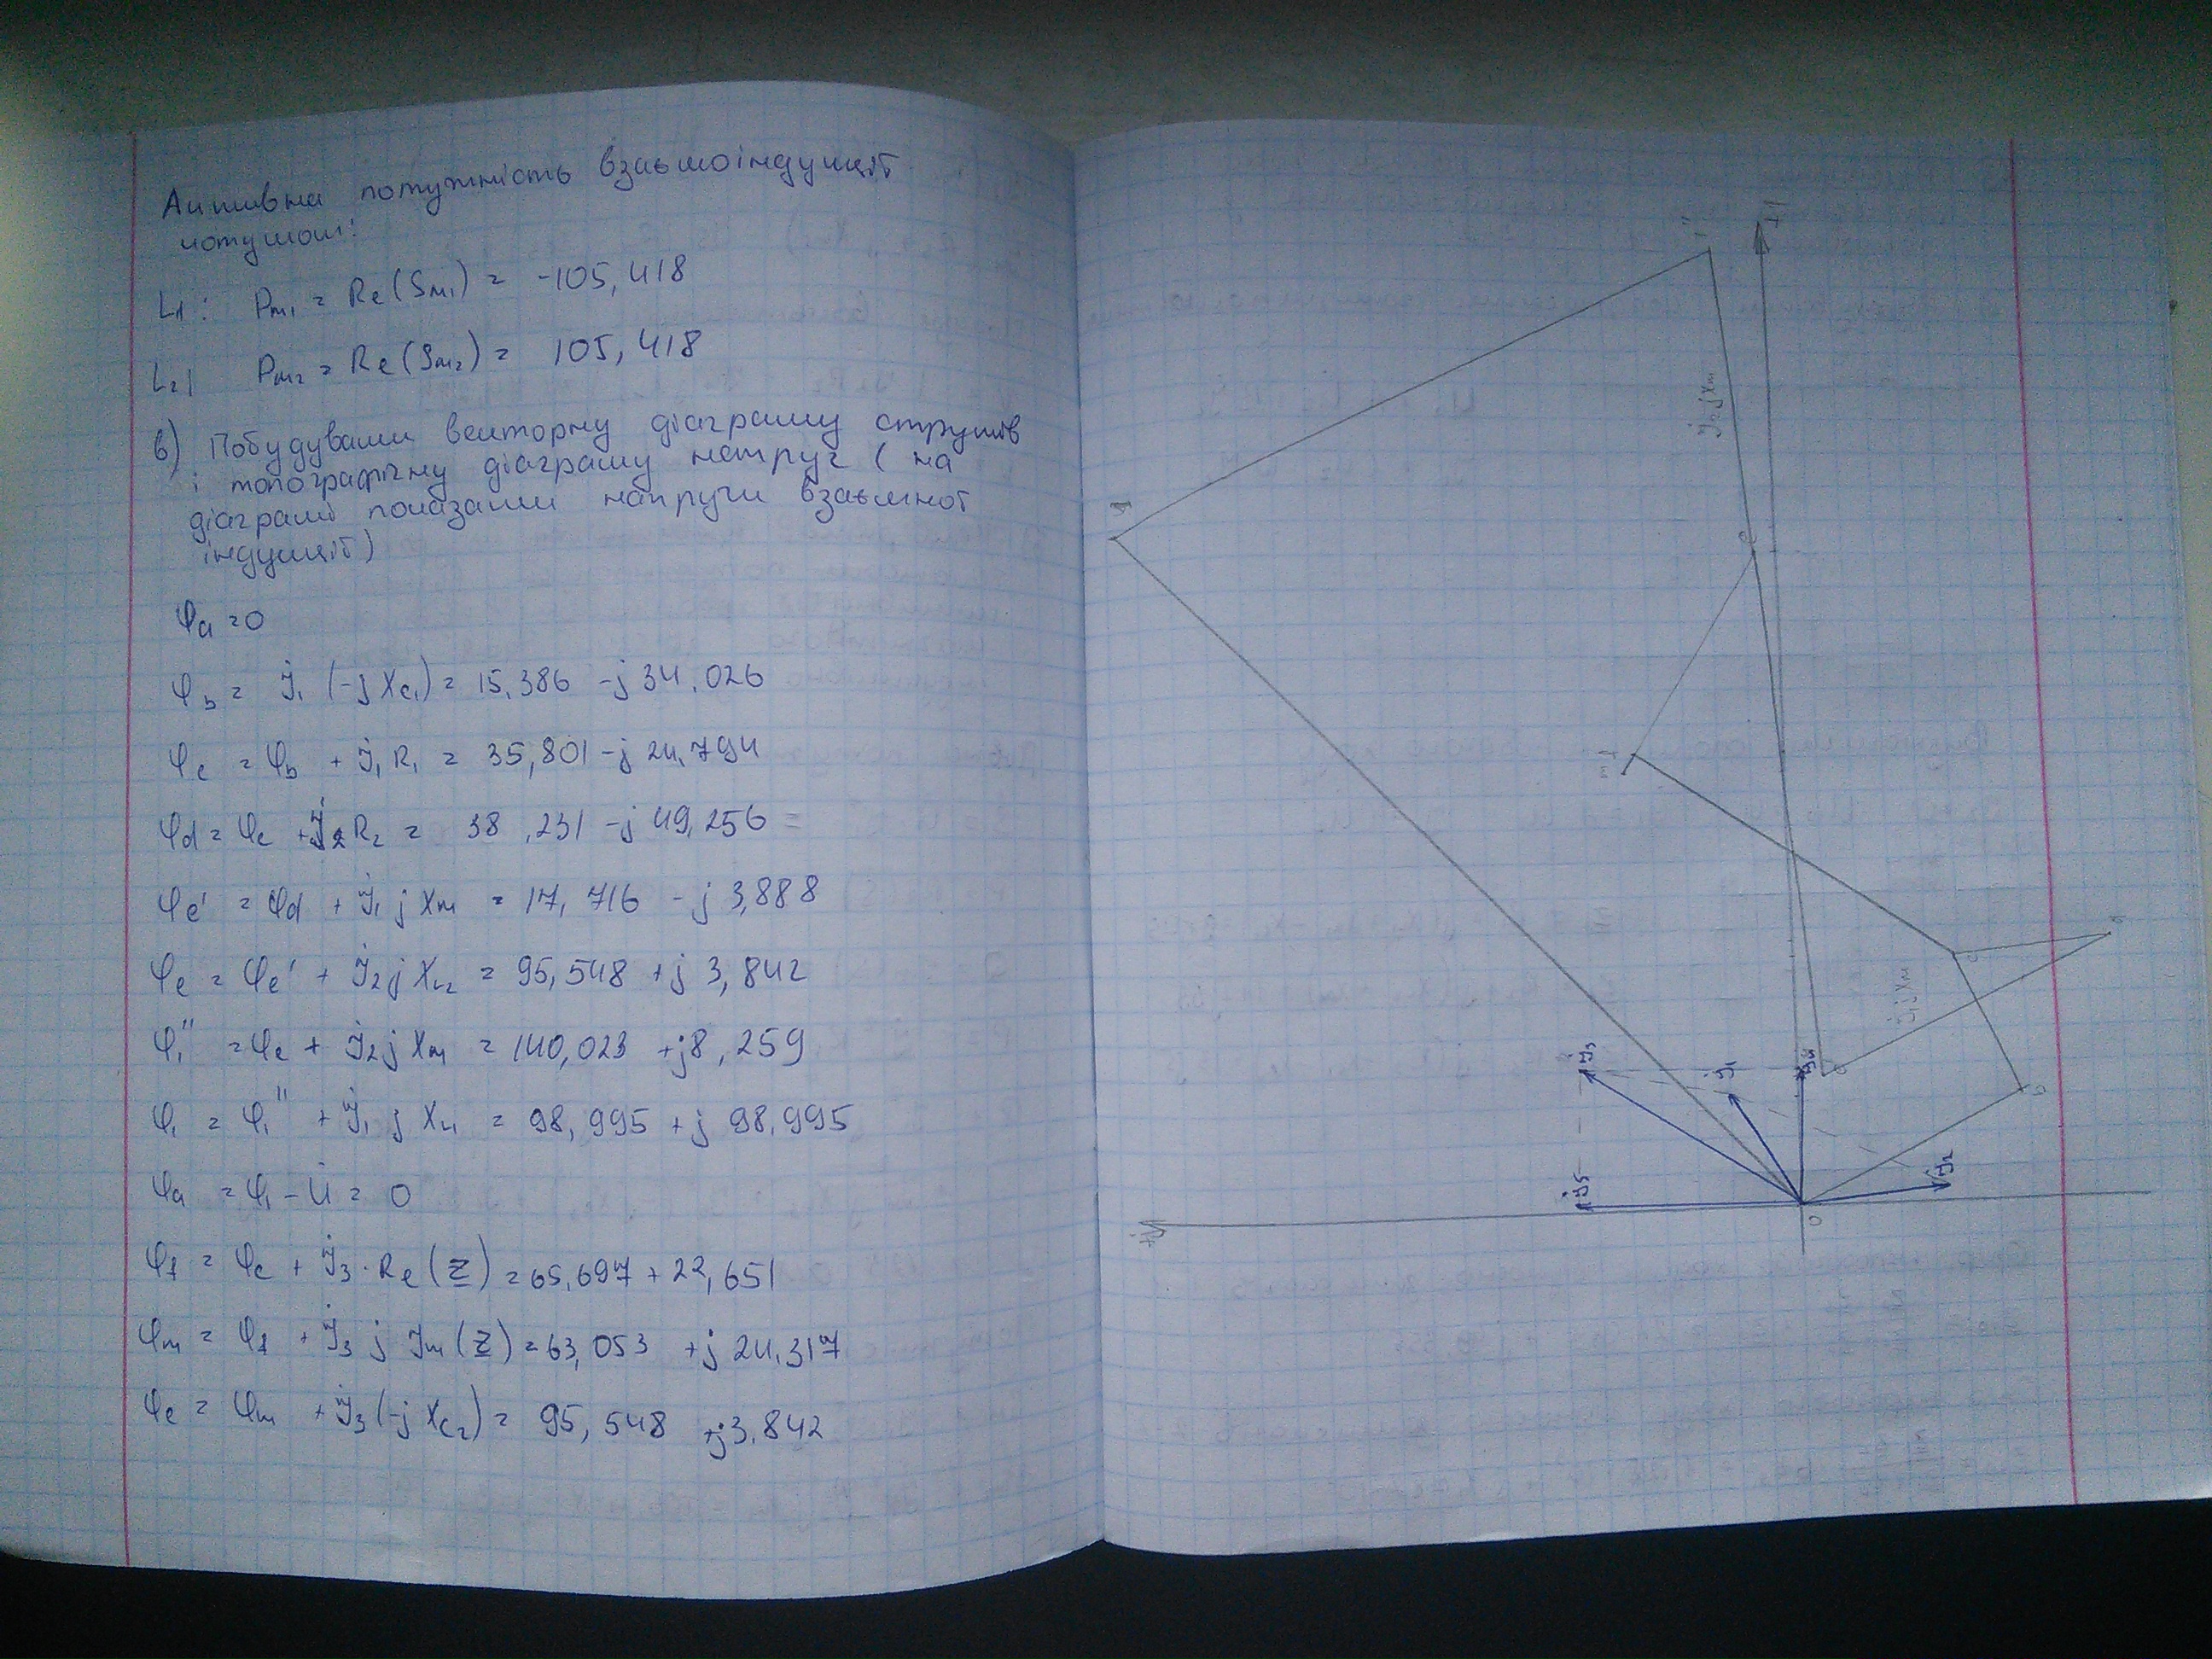 Активна потужність взаємоіндукції
котушок:
L₁: Pм₁ = Re(Sм₁) = -105,418
L₂| Pм₂ = Re(Sм₂) = 105,418
в) Побудували векторну діаграму струмів
і топографічну діаграму напруг (на
діаграмі показали напруги взаємної
індукції)
φa = 0
φb = İ₁ (-j Xc₁) = 15,386 -j 34,026
φc = φb + İ₁ R₁ = 35,801 -j 24,794
φd = φc + İ₂ R₂ = 38,231 -j 49,256 =
φe' = φd + İ₁ j Xм = 17,716 - j 3,888
φe = φe' + İ₂ j XL₂ = 95,548 +j 3,842
φ₁'' = φe + İ₂ j Xм = 140,023 +j8,259
φ₁ = φ₁'' + İ₁ j XL₁ = 98,995 +j 98,995
φa = φ₁ - U̇ = 0
φf = φc + İ₃ · Re(Z) = 65,697 + 22,651
φm = φf + İ₃ j Jm(Z) = 63,053 +j 24,317
φe = φm + İ₃(-j Xc₂) = 95,548 +j3,842
+1
1''
İ₂ j Xм
1
e
f
m
d
c
İ₁ j Xм
e'
b
İ₃
İ₁
İ₄
İ₅
İ₂
0
+j